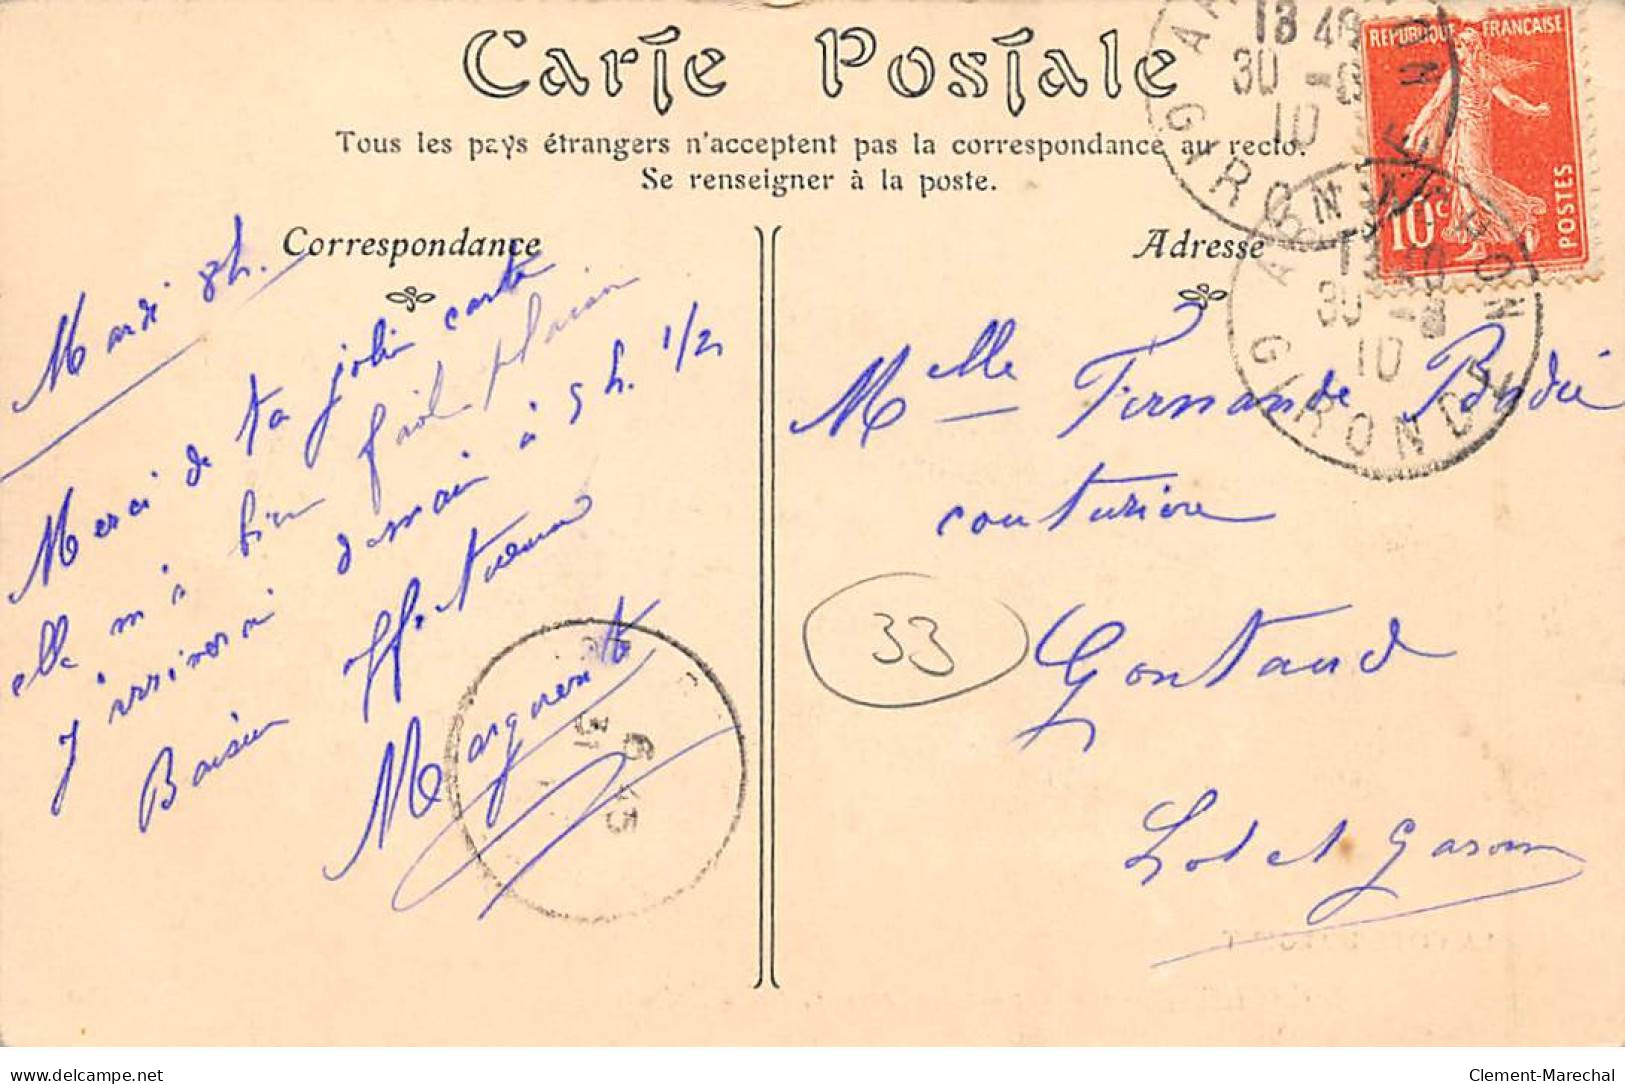 Carte Postale
Tous les pays étrangers n'acceptent pas la correspondance au recto.
Se renseigner à la poste.
Correspondance
Adresse
REPUBLIQUE FRANÇAISE
10c
POSTES
13 40
30
10
GIRONDE
13 40
30
10
GIRONDE
Mardi 8h.
Merci de ta jolie carte
elle m'a bien fait plaisir
J'arriverai demain à 9 h. 1/2
Baisers affectueux
Marguerite
6 45
31
Melle Fernande
couturière
33
Gontaud
Lot et Garonne
delcampe.net
Clement-Marechal